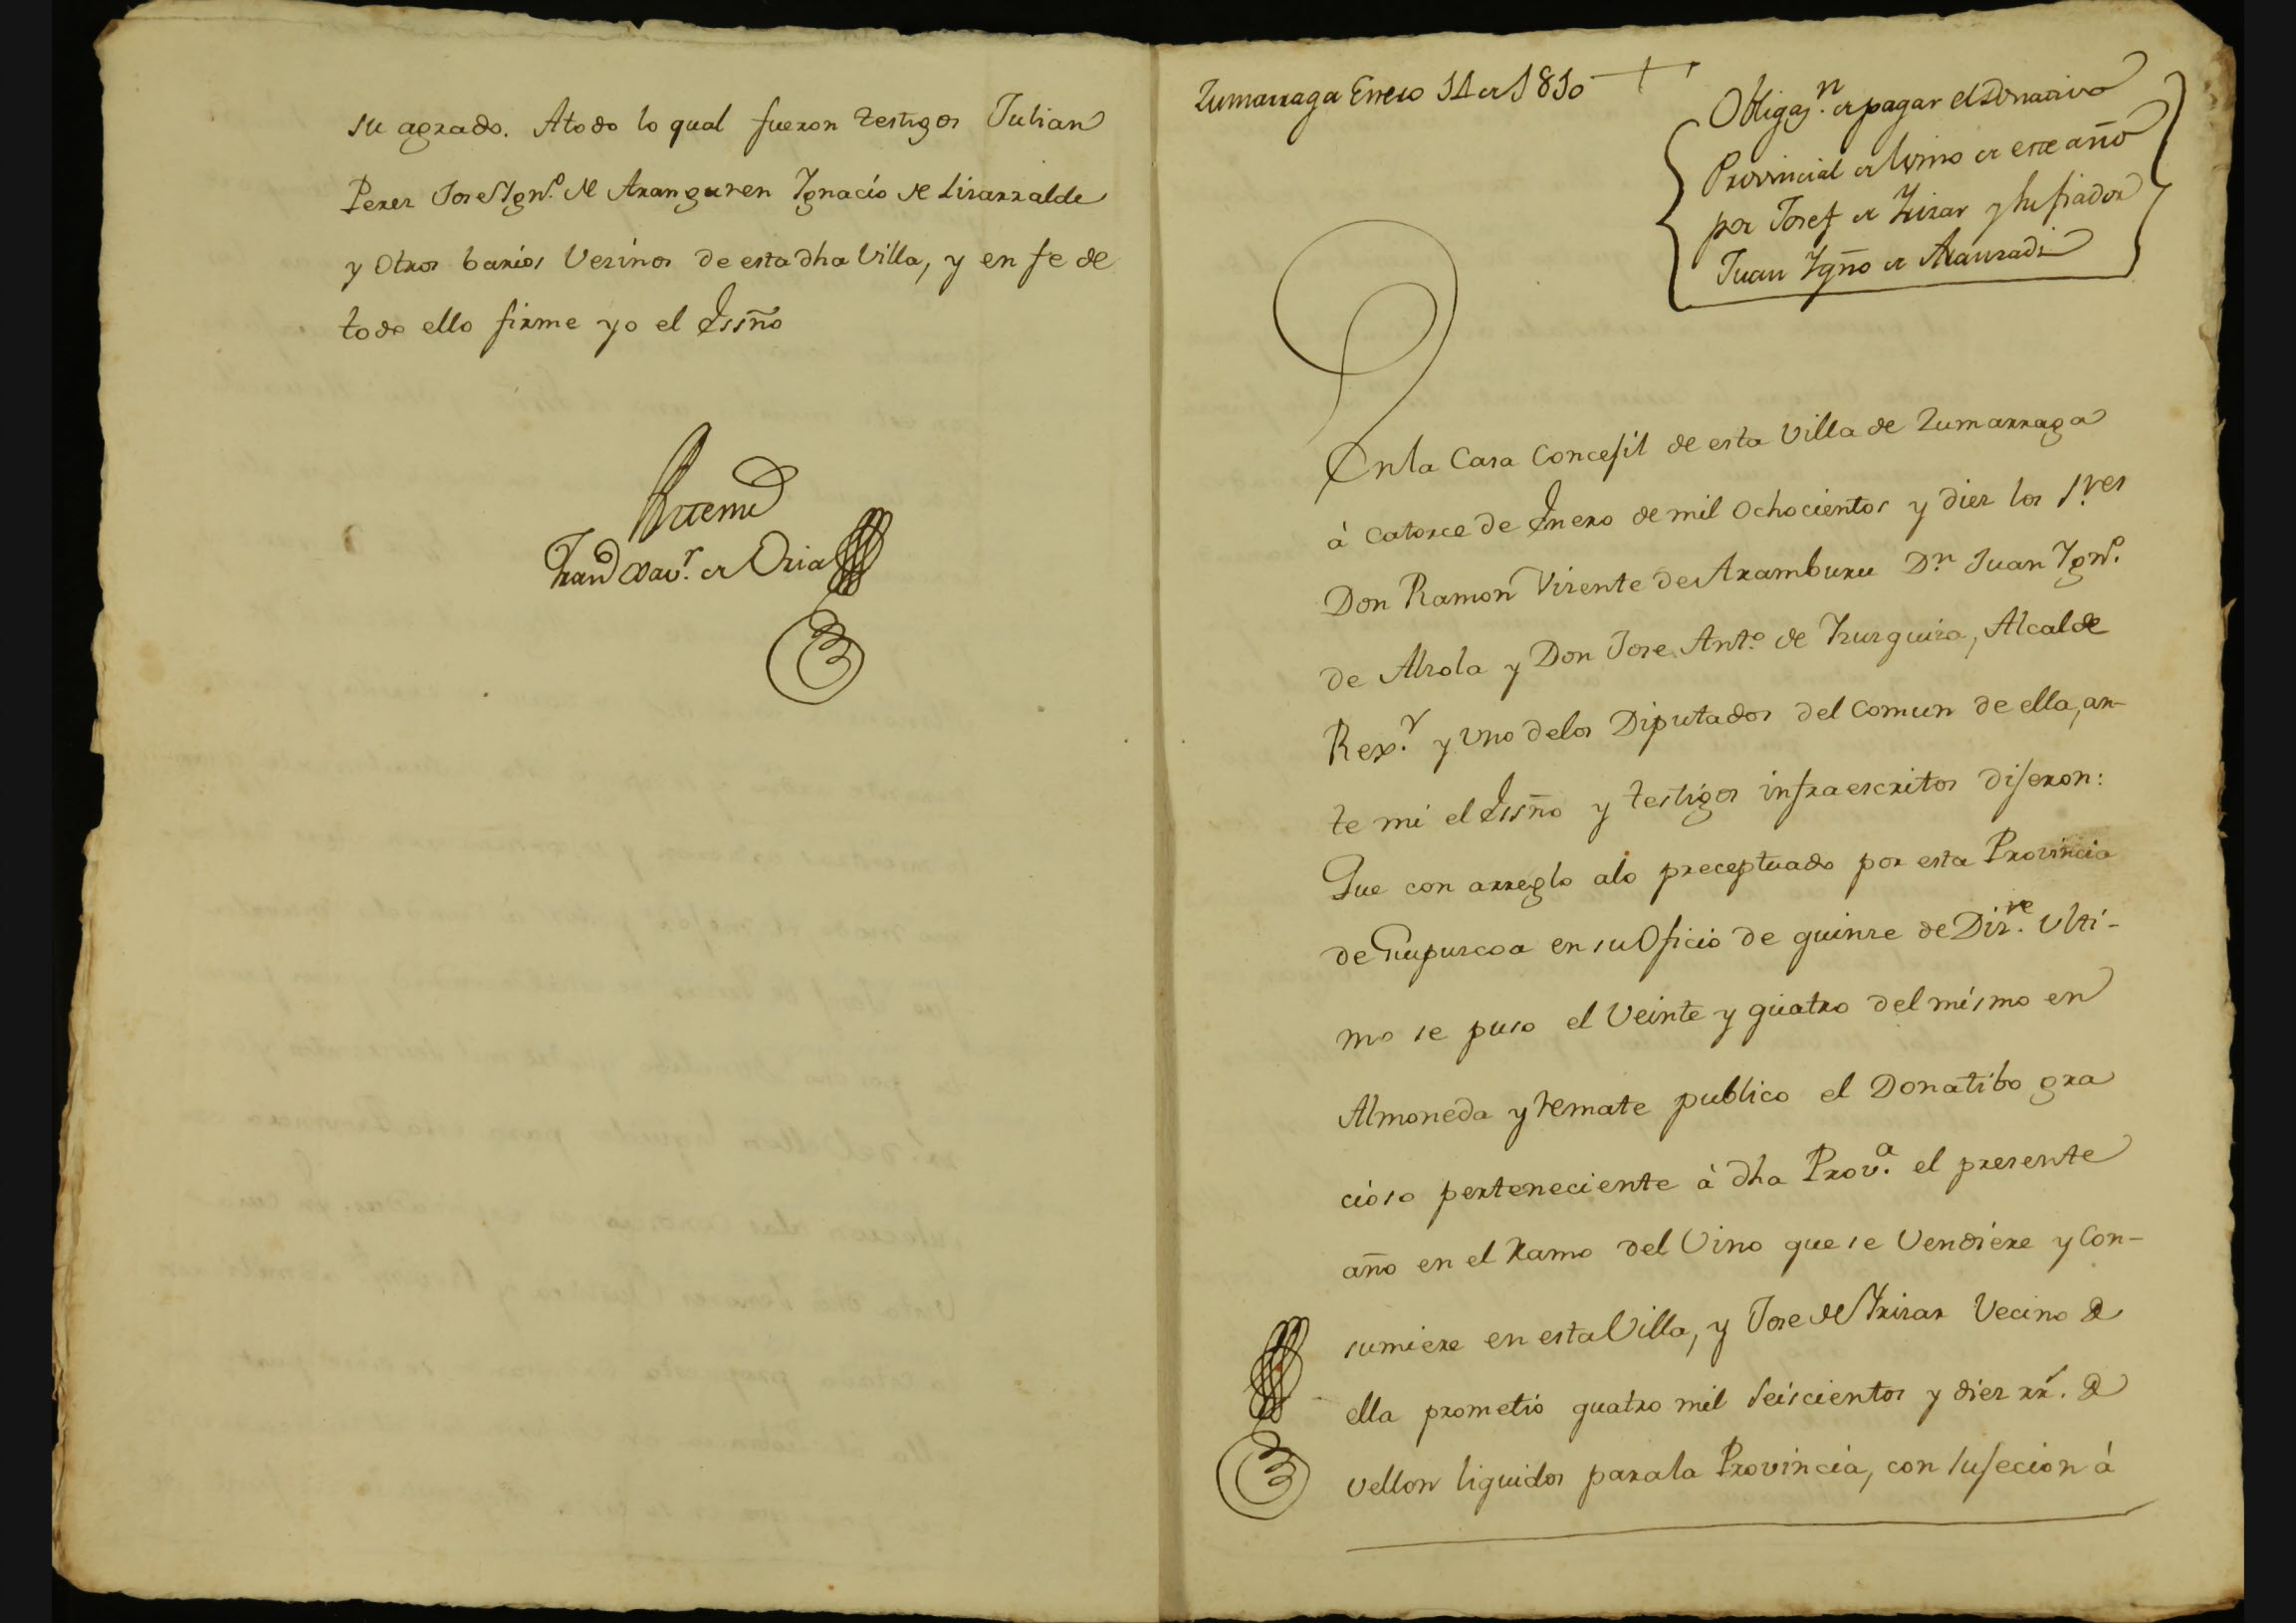 su agrado. Atodo lo qual fueron testigos Julian
Perez Jose Ygn.º de Aranguren Ygnacio de Lizarralde
y Otros barios Vezinos de esta dha Villa, y en fe de
todo ello firme yo el Essño
Antemi
Fran.co Xav.r de Oria
Zumarraga Enero 14 de 1810
Obligaz.n de pagar el Donativo
Provincial del vino de este año
por Josef de Yrizar y su fiador
Juan Ygño de Aranzadi
En la Casa Concejil de esta Villa de Zumarraga
à catorce de Enero de mil ochocientos y diez los S.res
Don Ramon Vizente de Aramburu D.n Juan Ygn.º
de Alzola y Don Jose Ant.º de Yzurguiza, Alcalde
Rex.r y Uno delos Diputados del Comun de ella, an-
te mi el Essño y testigos infraescritos dijeron:
Que con arreglo alo preceptuado por esta Provincia
de Guipuzcoa en su Oficio de quinze de Diz.re Ulti-
mo se puso el Veinte y quatro del mismo en
Almoneda y remate publico el Donatibo gra
cioso perteneciente à dha Prov.a el presente
año en el Ramo del Vino que se Vendiere y Con-
sumiere en esta Villa, y Jose de Yrizar Vecino de
ella prometió quatro mil Seiscientos y diez rr.s de
vellon liquidos para la Provincia, con sujecion à